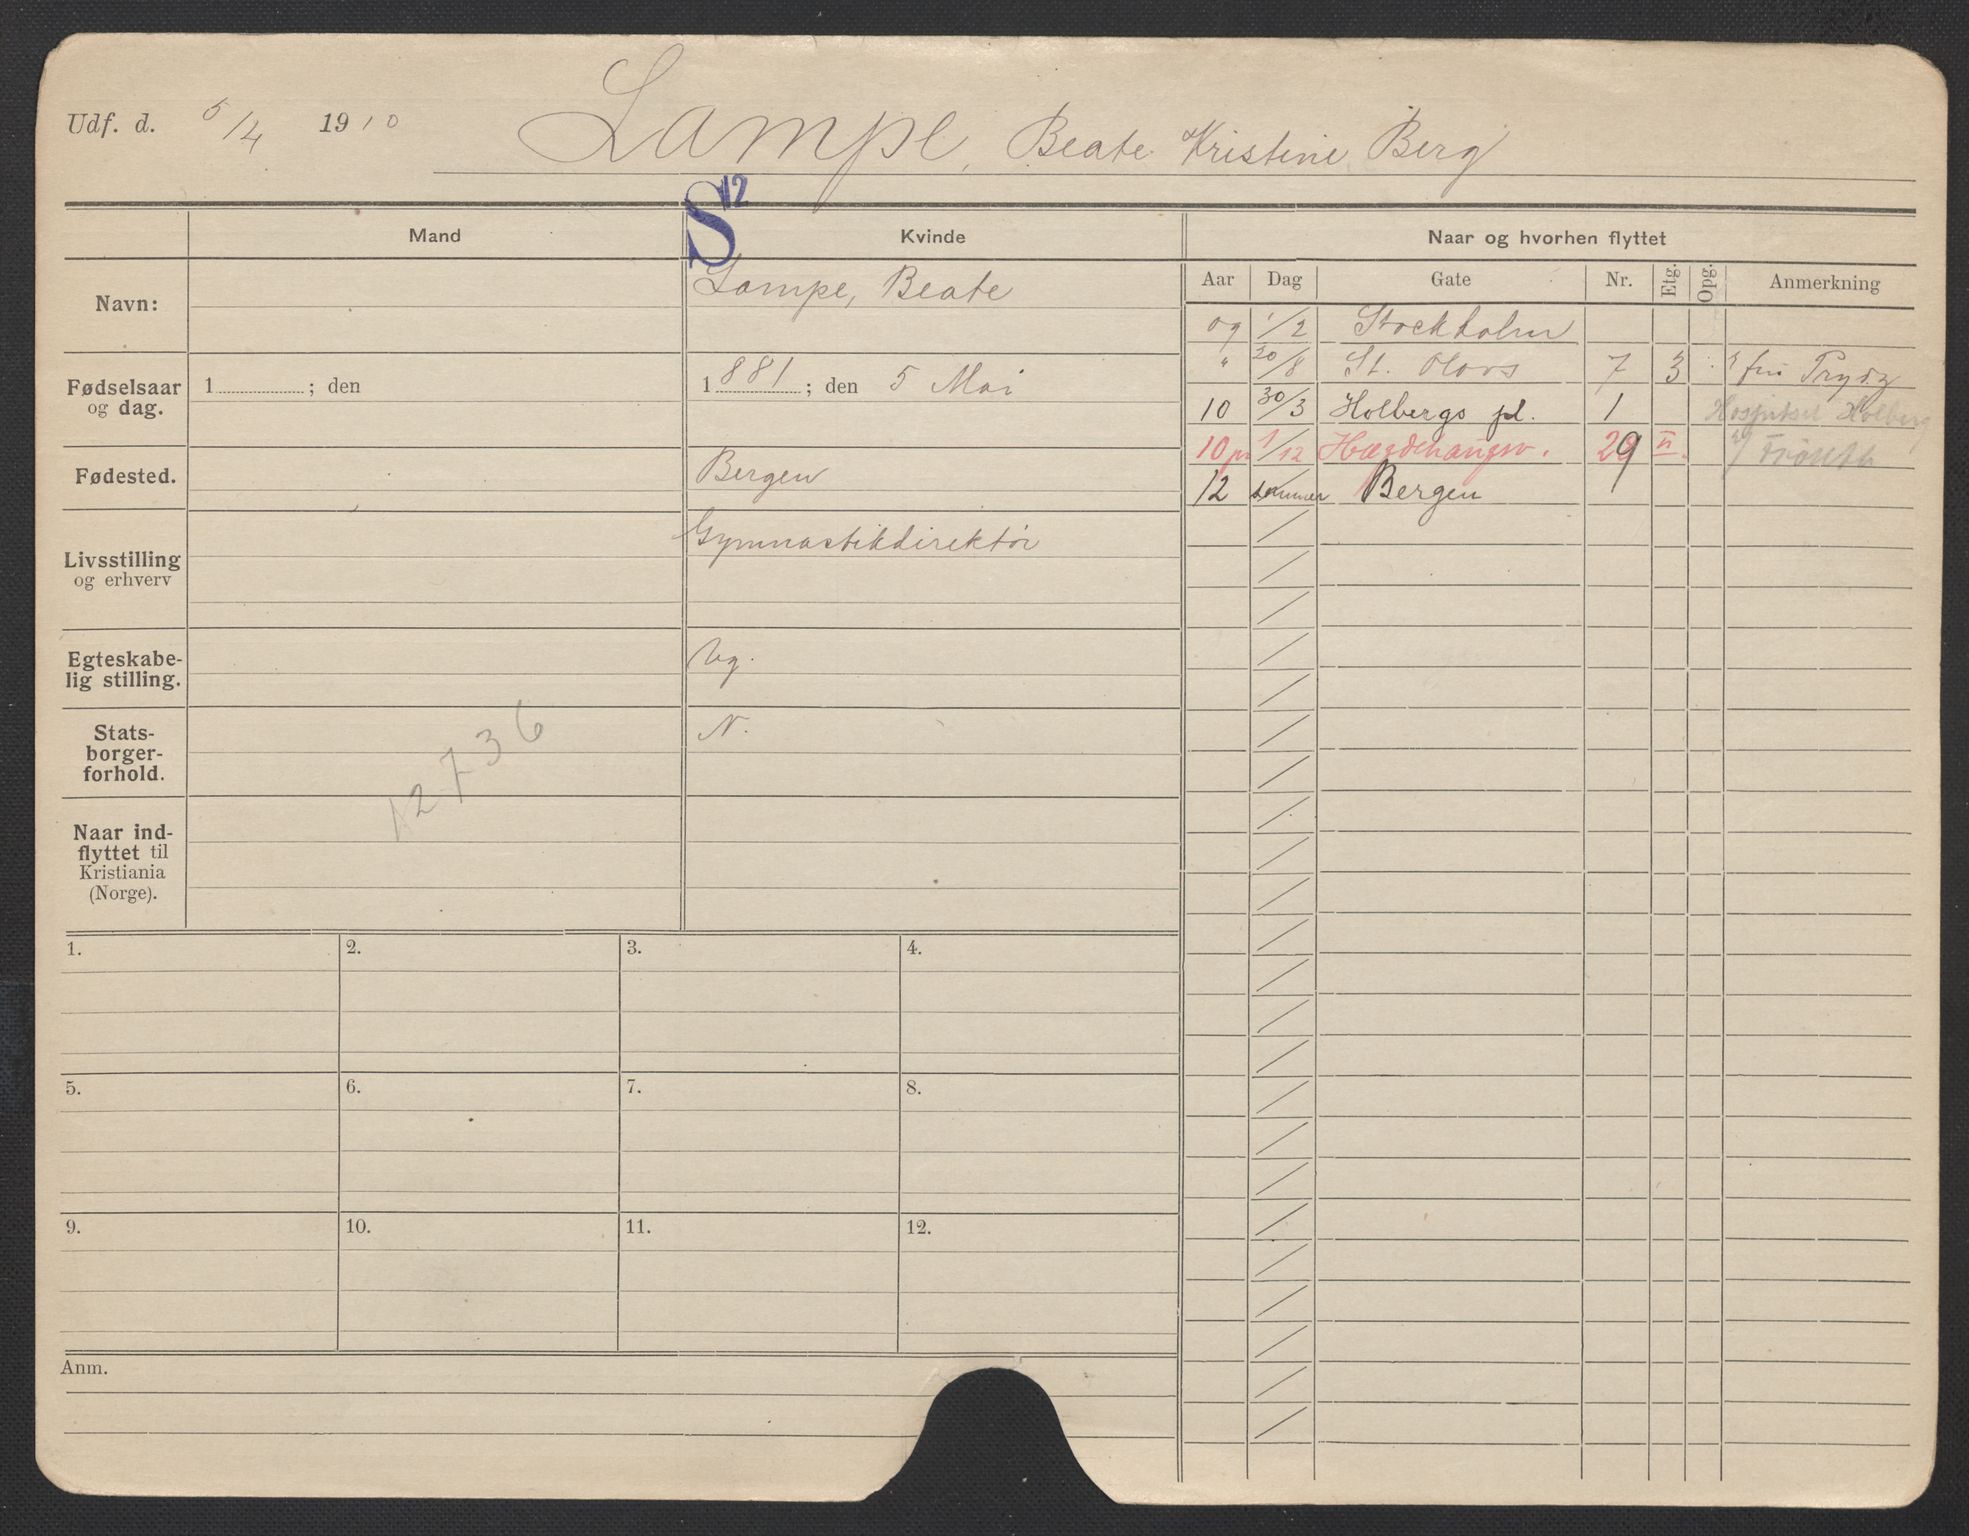 Udf. d. 5/4 1910 Lampe, Beate Kristine Berg
S 12
Mand Kvinde Naar og hvorhen flyttet
Navn: Lampe, Beate
Fødselsaar og dag. 1 ; den 1881 ; den 5 Mai
Fødested. Bergen
Livsstilling og erhverv Gymnastikdirektør
Egteskabelig stilling. Ug.
Statsborgerforhold. N.
12736
Naar indflyttet til Kristiania (Norge).
Aar Dag Gate Nr. Etg. Opg. Anmerkning
09 1/2 Stockholm
" 20/8 St. Olavs 7 3 fru
10 30/3 Holbergs pl. 1 Hospitset Holberg
10 1/12 Hægdehaugsv. 29 II
12 sommer Bergen
1. 2. 3. 4.
5. 6. 7. 8.
9. 10. 11. 12.
Anm.